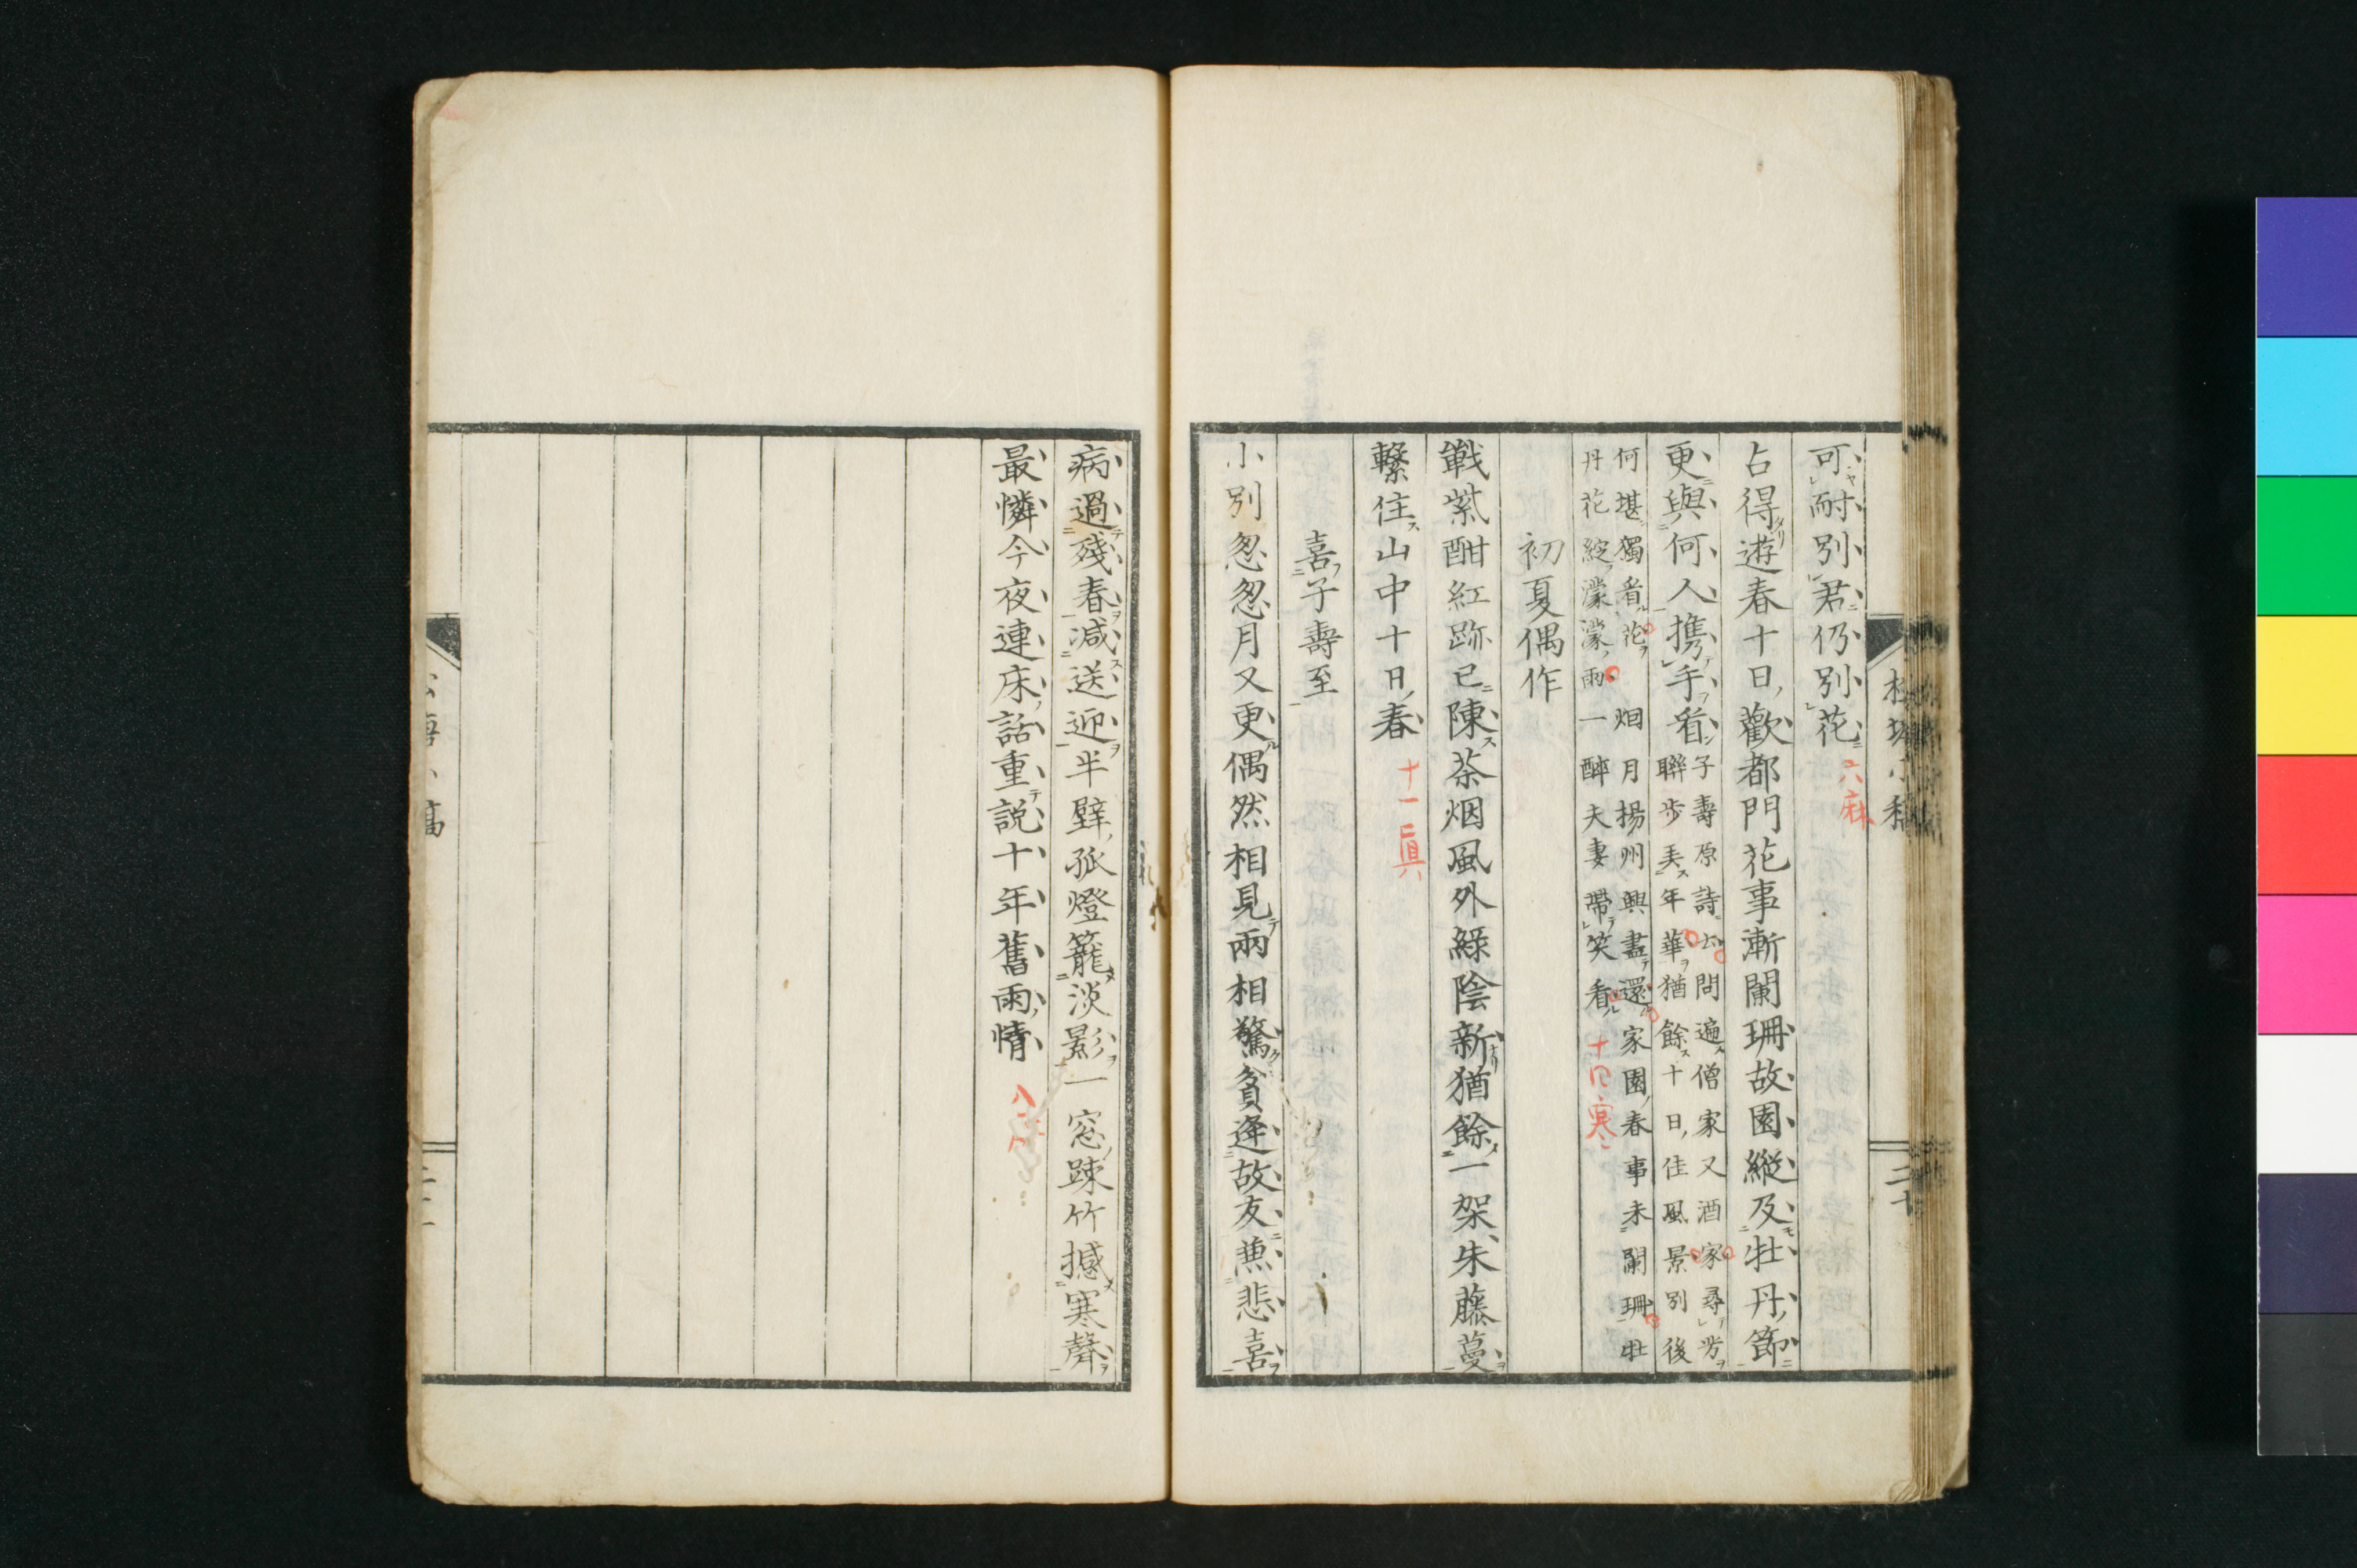 可耐別君仍別花 六麻
占得遊春十日歡都門花事漸闌珊故園縱及牡丹節
更與何人携手看
子壽原詩云問遍僧家又酒家尋芳
聯步美年華猶餘十日佳風景別後
何堪獨看花 烟月揚州興盡還家園春事未闌珊牡
丹花綻濛濛雨一醉夫妻帶笑看 十四寒
初夏偶作
戰紫酣紅跡已陳茶烟風外綠陰新猶餘一架朱藤蔓
繫住山中十日春 十一真
喜子壽至
小別怱怱月又更偶然相見兩相驚貧逢故友兼悲喜
病過殘春減送迎半壁孤燈籠淡影一窓踈竹撼寒聲
最憐今夜連床話重說十年舊雨情 八